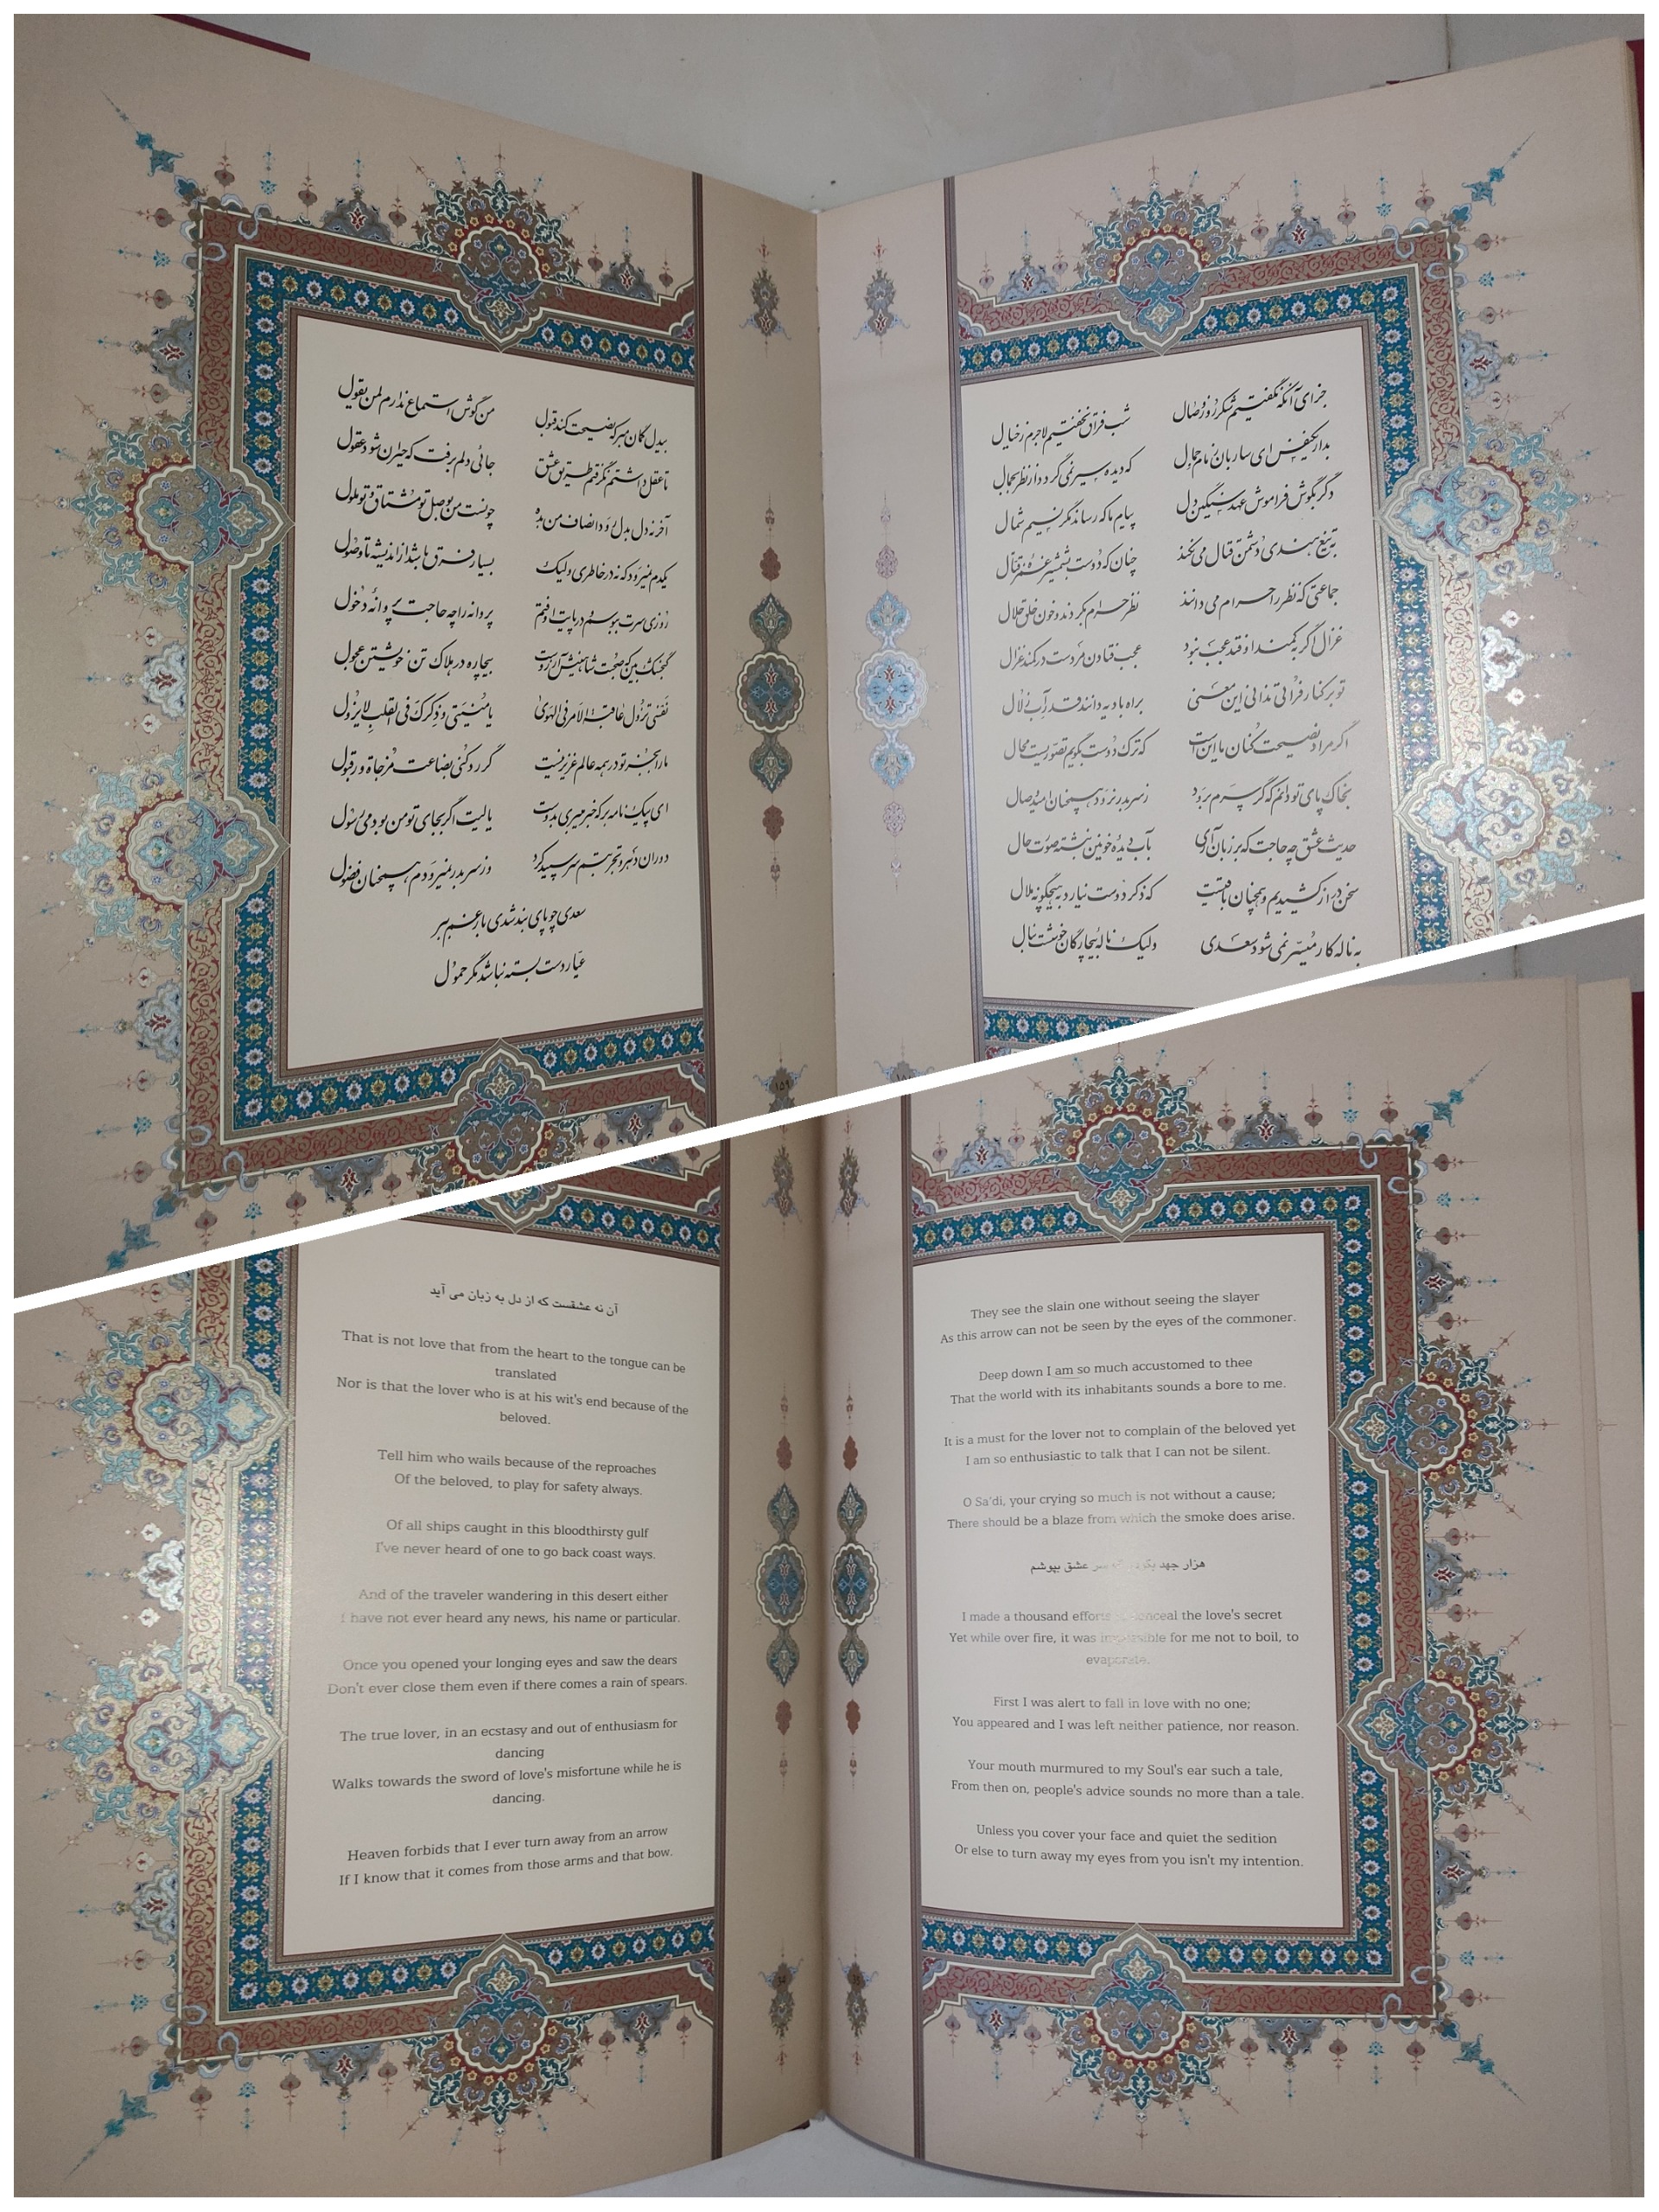 جزای آنکه نگفتیم شکر روز وصال شب فراق نخفتیم لاجرم ز خیال
بدار یکنفس ای ساربان زمام جمال که دیده سیر نمی گردد از نظر بجمال
دگر بگوش فراموش عهد سنگین دل پیام ما که رساند مگر نسیم شمال
بتیغ هندی دشمن قتال می نکند چنان که دوست بشمشیر غمزه قتال
جماعتی که نظر را حرام می دانند نظر حرام بکردند و خون خلق حلال
غزال اگر به کمند اوفتد عجب نبود عجب فتادن مردست در کمند غزال
تو بر کنار فراتی ندانی این معنی براه بادیه دانند قدر آب زلال
اگر مراد نصیحت کنان ما اینست که ترک دوست بگویم تصوّریست محال
بخاک پای تو دانم که گر سرم برود ز سر بدر نرود همچنان امید وصال
حدیث عشق چه حاجت که بر زبان آری بآب دیده خونین نبشته صورت حال
سخن دراز کشیدیم و همچنان باقیست که ذکر دوست نیارد بهیچگونه ملال
به ناله کار میسّر نمی شود سعدی ولیک ناله بیچارگان خوشست بنال
بیدل گمان مبر که نصیحت کند قبول من گوش استماع ندارم لمن یقول
تا عقل داشتم نگرفتم طریق عشق جائی دلم برفت که حیران شود عقول
آخر نه دل بدل رود انصاف من بده چونست من بوصل تو مشتاق و تو ملول
یکدم نمیرود که نه در خاطری ولیک بسیار فرق باشد از اندیشه تا وصول
روزی سرت ببوسم و در پایت اوفتم پروانه را چه حاجت پروانهٔ دخول
گنجشک بین که صحبت شاهینش آرزوست بیچاره در هلاک تن خویشتن عجول
نفسی تزول عاقبة الامر فی الهوی یا منیتی و ذکرک فی القلب لایزول
ما را بجز تو در همه عالم عزیز نیست گر رد کنی بضاعت مزجاة ور قبول
ای پیک نامه بر که خبر میبری بدوست یا لیت اگر بجای تو من بودمی رسول
دوران دهر و تجربتم سر سپید کرد وز سر بدر نمیرودم همچنان فضول
سعدی چو پای بند شدی بار غم ببر
عیّار دست بسته نباشد مگر حمول
۱۵۹
آن نه عشقست که از دل به زبان می آید
That is not love that from the heart to the tongue can be
translated
Nor is that the lover who is at his wit's end because of the
beloved.
Tell him who wails because of the reproaches
Of the beloved, to play for safety always.
Of all ships caught in this bloodthirsty gulf
I've never heard of one to go back coast ways.
And of the traveler wandering in this desert either
I have not ever heard any news, his name or particular.
Once you opened your longing eyes and saw the dears
Don't ever close them even if there comes a rain of spears.
The true lover, in an ecstasy and out of enthusiasm for
dancing
Walks towards the sword of love's misfortune while he is
dancing.
Heaven forbids that I ever turn away from an arrow
If I know that it comes from those arms and that bow.
They see the slain one without seeing the slayer
As this arrow can not be seen by the eyes of the commoner.
Deep down I am so much accustomed to thee
That the world with its inhabitants sounds a bore to me.
It is a must for the lover not to complain of the beloved yet
I am so enthusiastic to talk that I can not be silent.
O Sa'di, your crying so much is not without a cause;
There should be a blaze from which the smoke does arise.
هزار جهد بکردم که سر عشق بپوشم
I made a thousand efforts to conceal the love's secret
Yet while over fire, it was impossible for me not to boil, to
evaporate.
First I was alert to fall in love with no one;
You appeared and I was left neither patience, nor reason.
Your mouth murmured to my Soul's ear such a tale,
From then on, people's advice sounds no more than a tale.
Unless you cover your face and quiet the sedition
Or else to turn away my eyes from you isn't my intention.